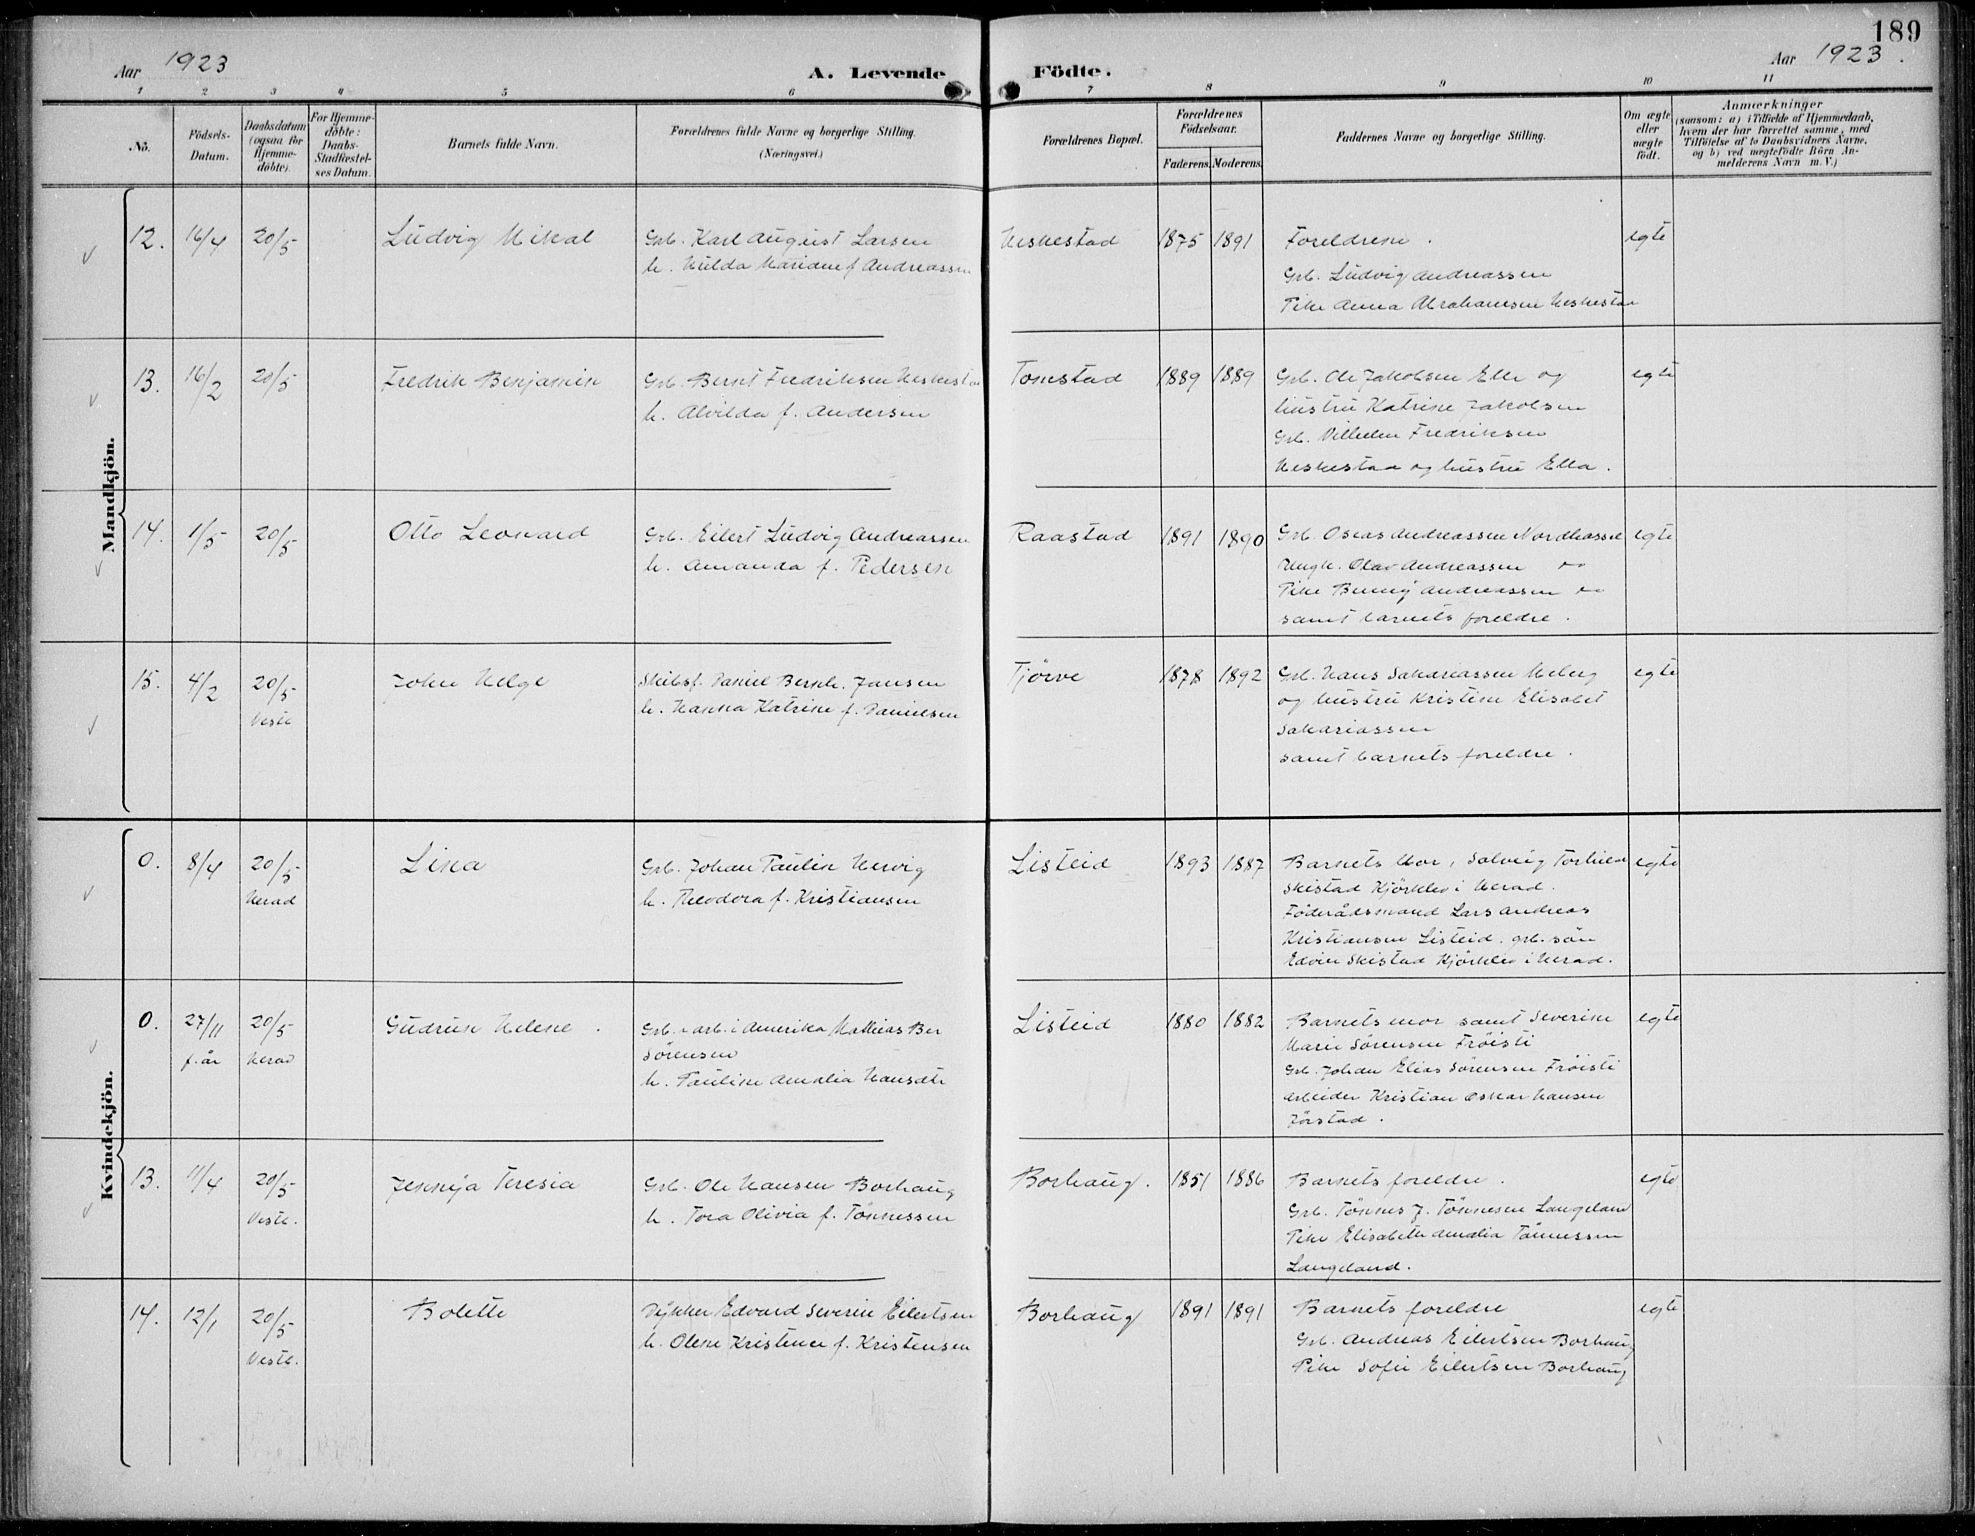 189
Aar 1923
A. Levende Födte.
Aar 1923.
1 2 3 4 5 6 7 8 9 10 11
No.
Födsels-
Datum.
Daabsdatum
(ogsaa for
Hjemme-
döbte).
For Hjemme-
döbte:
Daabs-
Stadfæstel-
ses Datum.
Barnets fulde Navn.
Forældrenes fulde Navne og borgerlige Stilling.
(Næringsvei.)
Forældrenes Bopæl.
Forældrenes
Födselsaar.
Faderens. Moderens.
Faddernes Navne og borgerlige Stilling.
Om ægte
eller
uægte
födt.
Anmærkninger
(saasom: a) i Tilfælde af Hjemmedaab,
hvem der har forrettet samme, med
Tilföielse af to Daabsvidners Navne,
og b) ved uægtefödte Börn An-
melderens Navn m.V.)
Mandkjön.
12. 16/4 20/5 Ludvig Mikal
Grb. Karl August Larsen
h. Hulda Mariane f Andreassen
Heskestad 1875 1891
Foreldrene.
Grb. Ludvig Andreassen
Pike Anna Abrahamsen Heskestad
egte
13. 16/2 20/5 Fredrik Benjamin
Grb. Bernt Fredriksen Heskestad
h. Alvilda f. Andersen
Tomstad 1889 1889
Grb. Ole Jakobsen Elle og
hustru Katrine Jakobsen
Grb. Vilhelm Fredriksen
Heskestad og hustru Ella.
egte
14. 1/5 20/5 Otto Leonard
Grb. Eilert Ludvig Andreassen
h. Amanda f. Pedersen
Raastad 1891 1890
Grb. Oskar Andreassen Nordhassel
Ungk. Olav Andreassen
Pike Andreassen
samt barnets foreldre.
egte
15. 4/2 20/5 John Helge
Vestb.
Skibsf. Daniel Bernh. Jansen
h. Hanna Katrine f. Danielsen
Tjörve 1878 1892
Grb. Hans Sakariassen Meberg
og hustru Kristine Elisabet
Sakariassen
samt barnets foreldre.
egte
Kvindekjön.
0. 8/4 20/5 Lina
Herad
Grb. Johan Paulin Hervig
h. Theodora f. Kristiansen
Listeid 1893 1887
Barnets Mor, Solveig Torhild
Skistad Kjörkleiv i Herad.
Föderådsmand Lars Andreas
Kristiansen Listeid. grb. sön
Edvin Skistad Kjörkleiv i Herad.
egte
0. 27/11 20/5 Gudrun Helene.
f. år Herad
Grb. arb. i Amerika Mathias Ber
Sörensen
h. Pauline Amalia Hansdtr
Listeid 1880 1882
Barnets mor samt Severine
Marie Sörensen Fröisti
Grb. Johan Elias Sörensen Fröisti
arbeider Kristian Oskar Hansen
Jörstad.
egte
13. 11/4 20/5 Jennya Teresia
Vestb.
Grb. Ole Hansen Borhaug
h. Tora Olivia f. Tönnessen
Borhaug. 1851 1886
Barnets foreldre.
Grb. Tönnes J. Tönnesen Langeland
Pike Elisabeth Amalia Tönnessen
Langeland.
egte
14. 12/1 20/5 Bolette
Vestb.
Dykker Edvard Severin Eilertsen
h. Olene Kristence f. Kristensen
Borhaug 1891 1891
Barnets foreldre
Grb. Andreas Eilertsen Borhaug
Pike Sofie Eilertsen Borhaug
egte